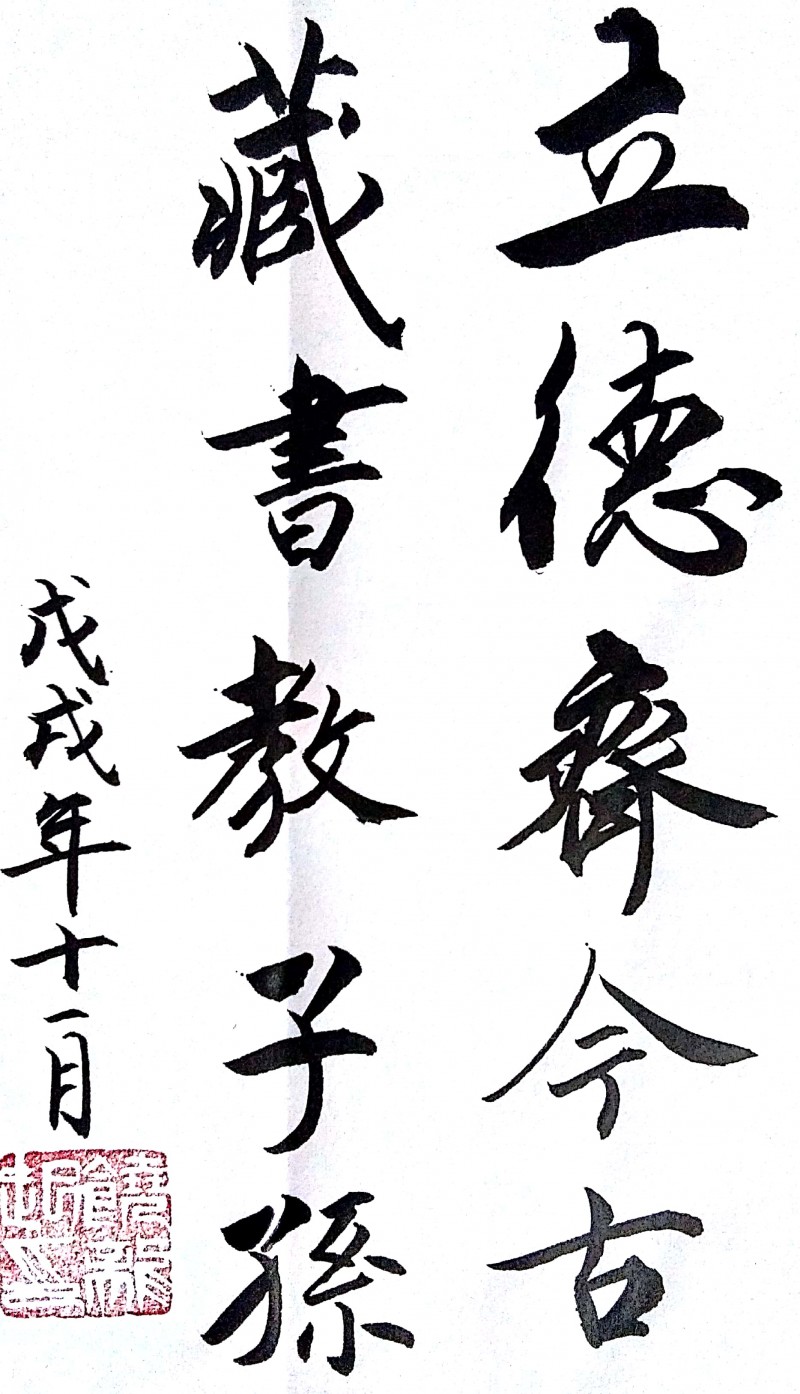 立德齊今古
藏書教子孫
戊戌年十一月